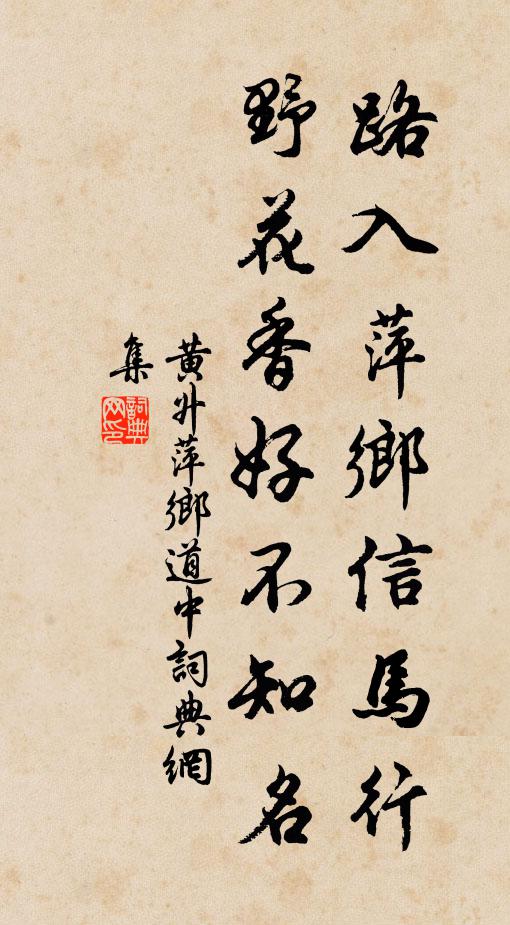 路入萍鄉信馬行
野花香好不知名
黃升萍鄉道中詞典網
集
詞典
网印